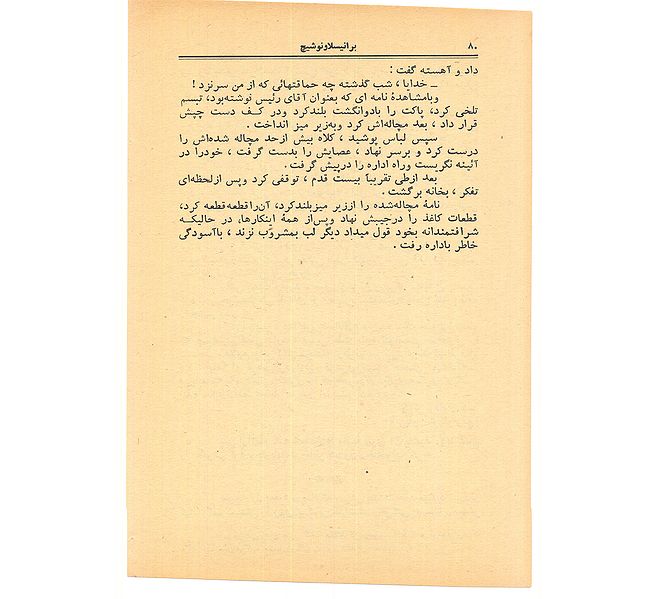 ۸۰
برانیسلاونوشیچ
داد و آهسته گفت :
ـ خدایا ، شب گذشته چه حماقتهائی که از من سرنزد !
وبامشاهدهٔ نامه ای که بعنوان آقای رئیس نوشته‌بود، تبسم
تلخی کرد، پاکت را بادوانگشت بلندکرد ودر کف دست چپش
قرار داد ، بعد مچاله‌اش کرد وبه‌زیر میز انداخت .
سپس لباس پوشید ، کلاه بیش ازحد مچاله شده‌اش را
درست کرد و برسر نهاد ، عصایش را بدست گرفت ، خودرا در
آئینه نگریست وراه اداره را درپیش گرفت .
بعد ازطی تقریباً بیست قدم ، توقفی کرد وپس ازلحظه‌ای
تفکر ، بخانه برگشت .
نامهٔ مچاله‌شده را اززیر میزبلندکرد، آن‌راقطعه‌قطعه کرد،
قطعات کاغذ را درجیبش نهاد وپس‌از همهٔ اینکارها، در حالیکه
شرافتمندانه بخود قول میداد دیگر لب بمشروب نزند ، باآسودگی
خاطر باداره رفت .